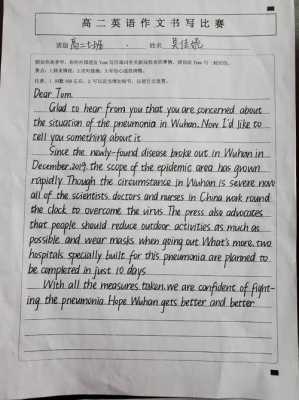 高二英语作文书写比赛
班级 高二七班 姓名
Dear Tom,
Glad to hear from you that you are concerned about
the situation of the pneumonia in Wuhan. Now I'd like to
tell you something about it.
Since the newly-found disease broke out in Wuhan in
December, 2019, the scope of the epidemic area has grown
rapidly. Though the circumstance in Wuhan is severe now
all of the scientists, doctors and nurses in China work round
the clock to overcome the virus. The press also advocates
that people should reduce outdoor activities as much as
possible and wear masks when going out. What's more, two
hospitals specially built for this pneumonia are planned to
be completed in just 10 days.
With all the measures taken, we are confident of fight-
ing the pneumonia. Hope Wuhan gets better and better.